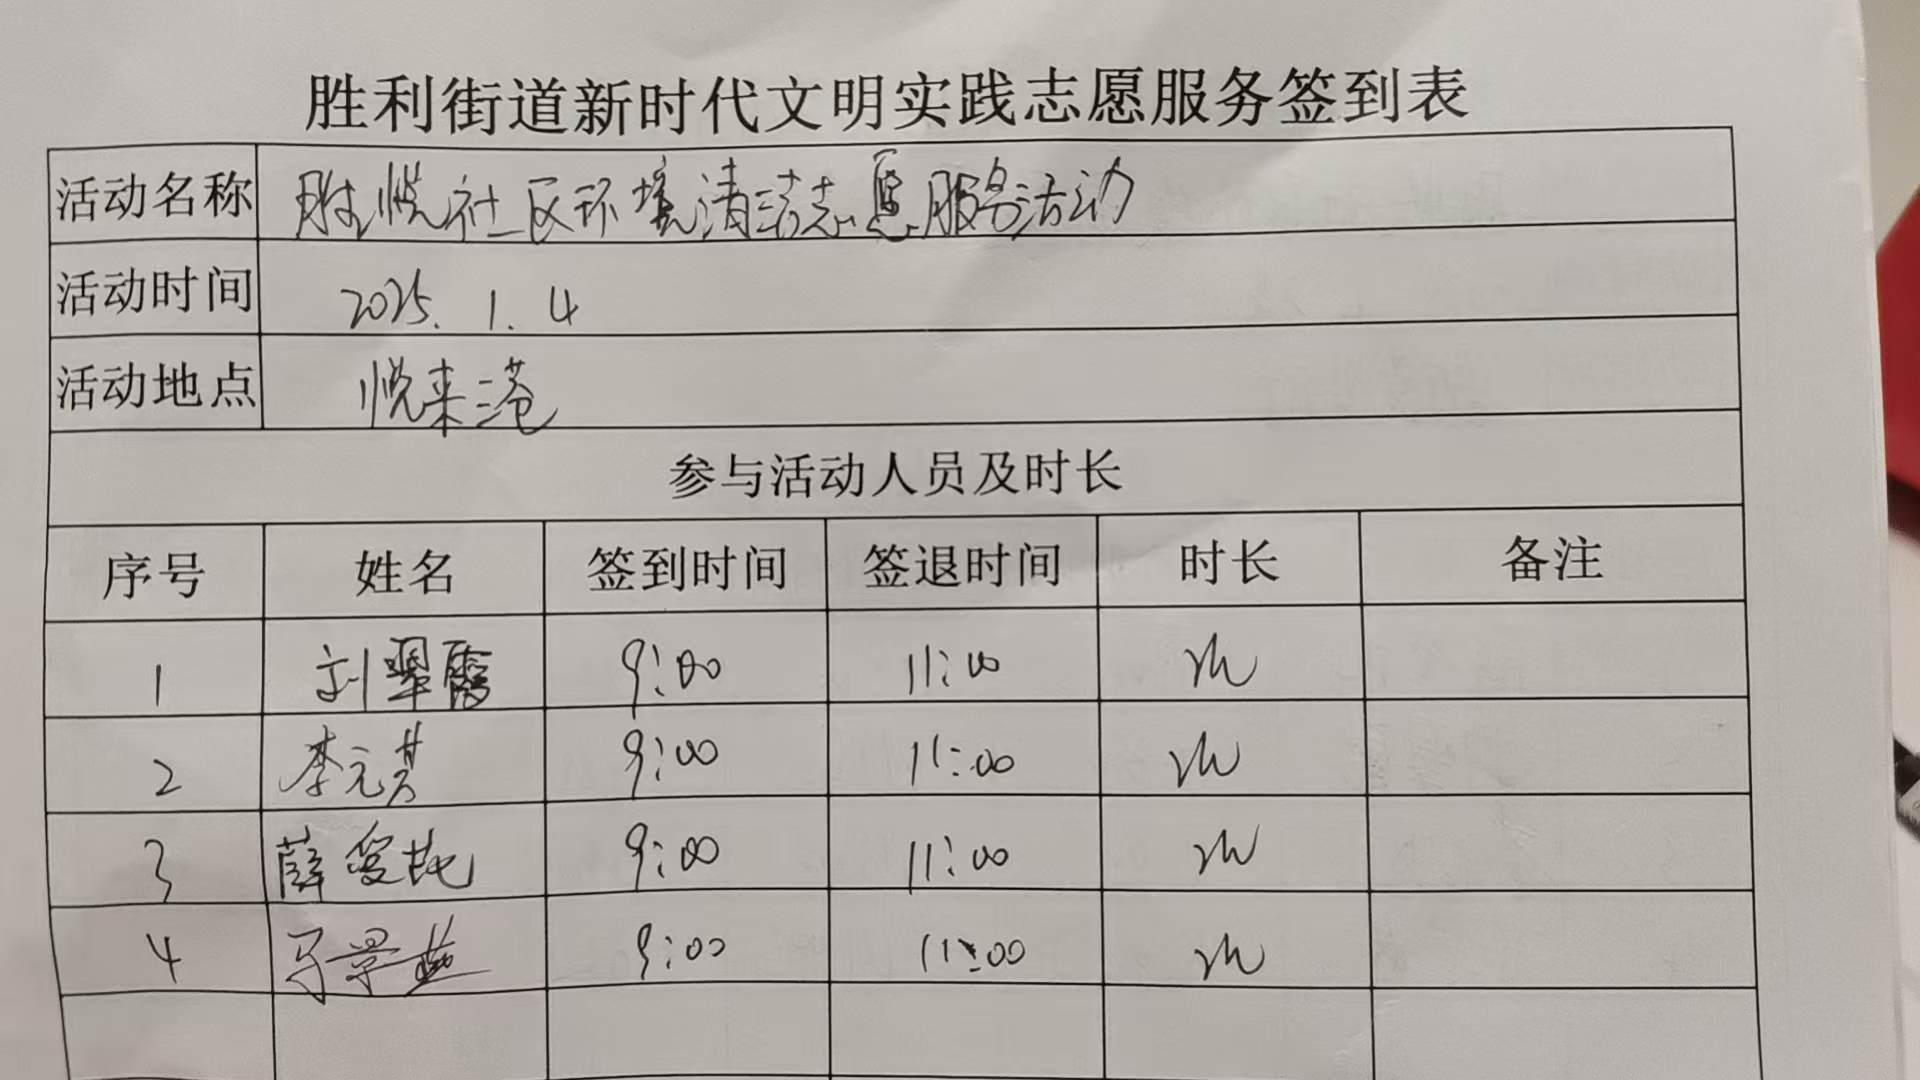 胜利街道新时代文明实践志愿服务签到表
活动名称 胜悦社区环境清洁志愿服务活动
活动时间 2025.1.4
活动地点 悦来港
参与活动人员及时长
序号 姓名 签到时间 签退时间 时长 备注
1 刘翠霞 9:00 11:00 2h
2 李元芳 9:00 11:00 2h
3 薛爱 9:00 11:00 2h
4 马景燕 9:00 11:00 2h